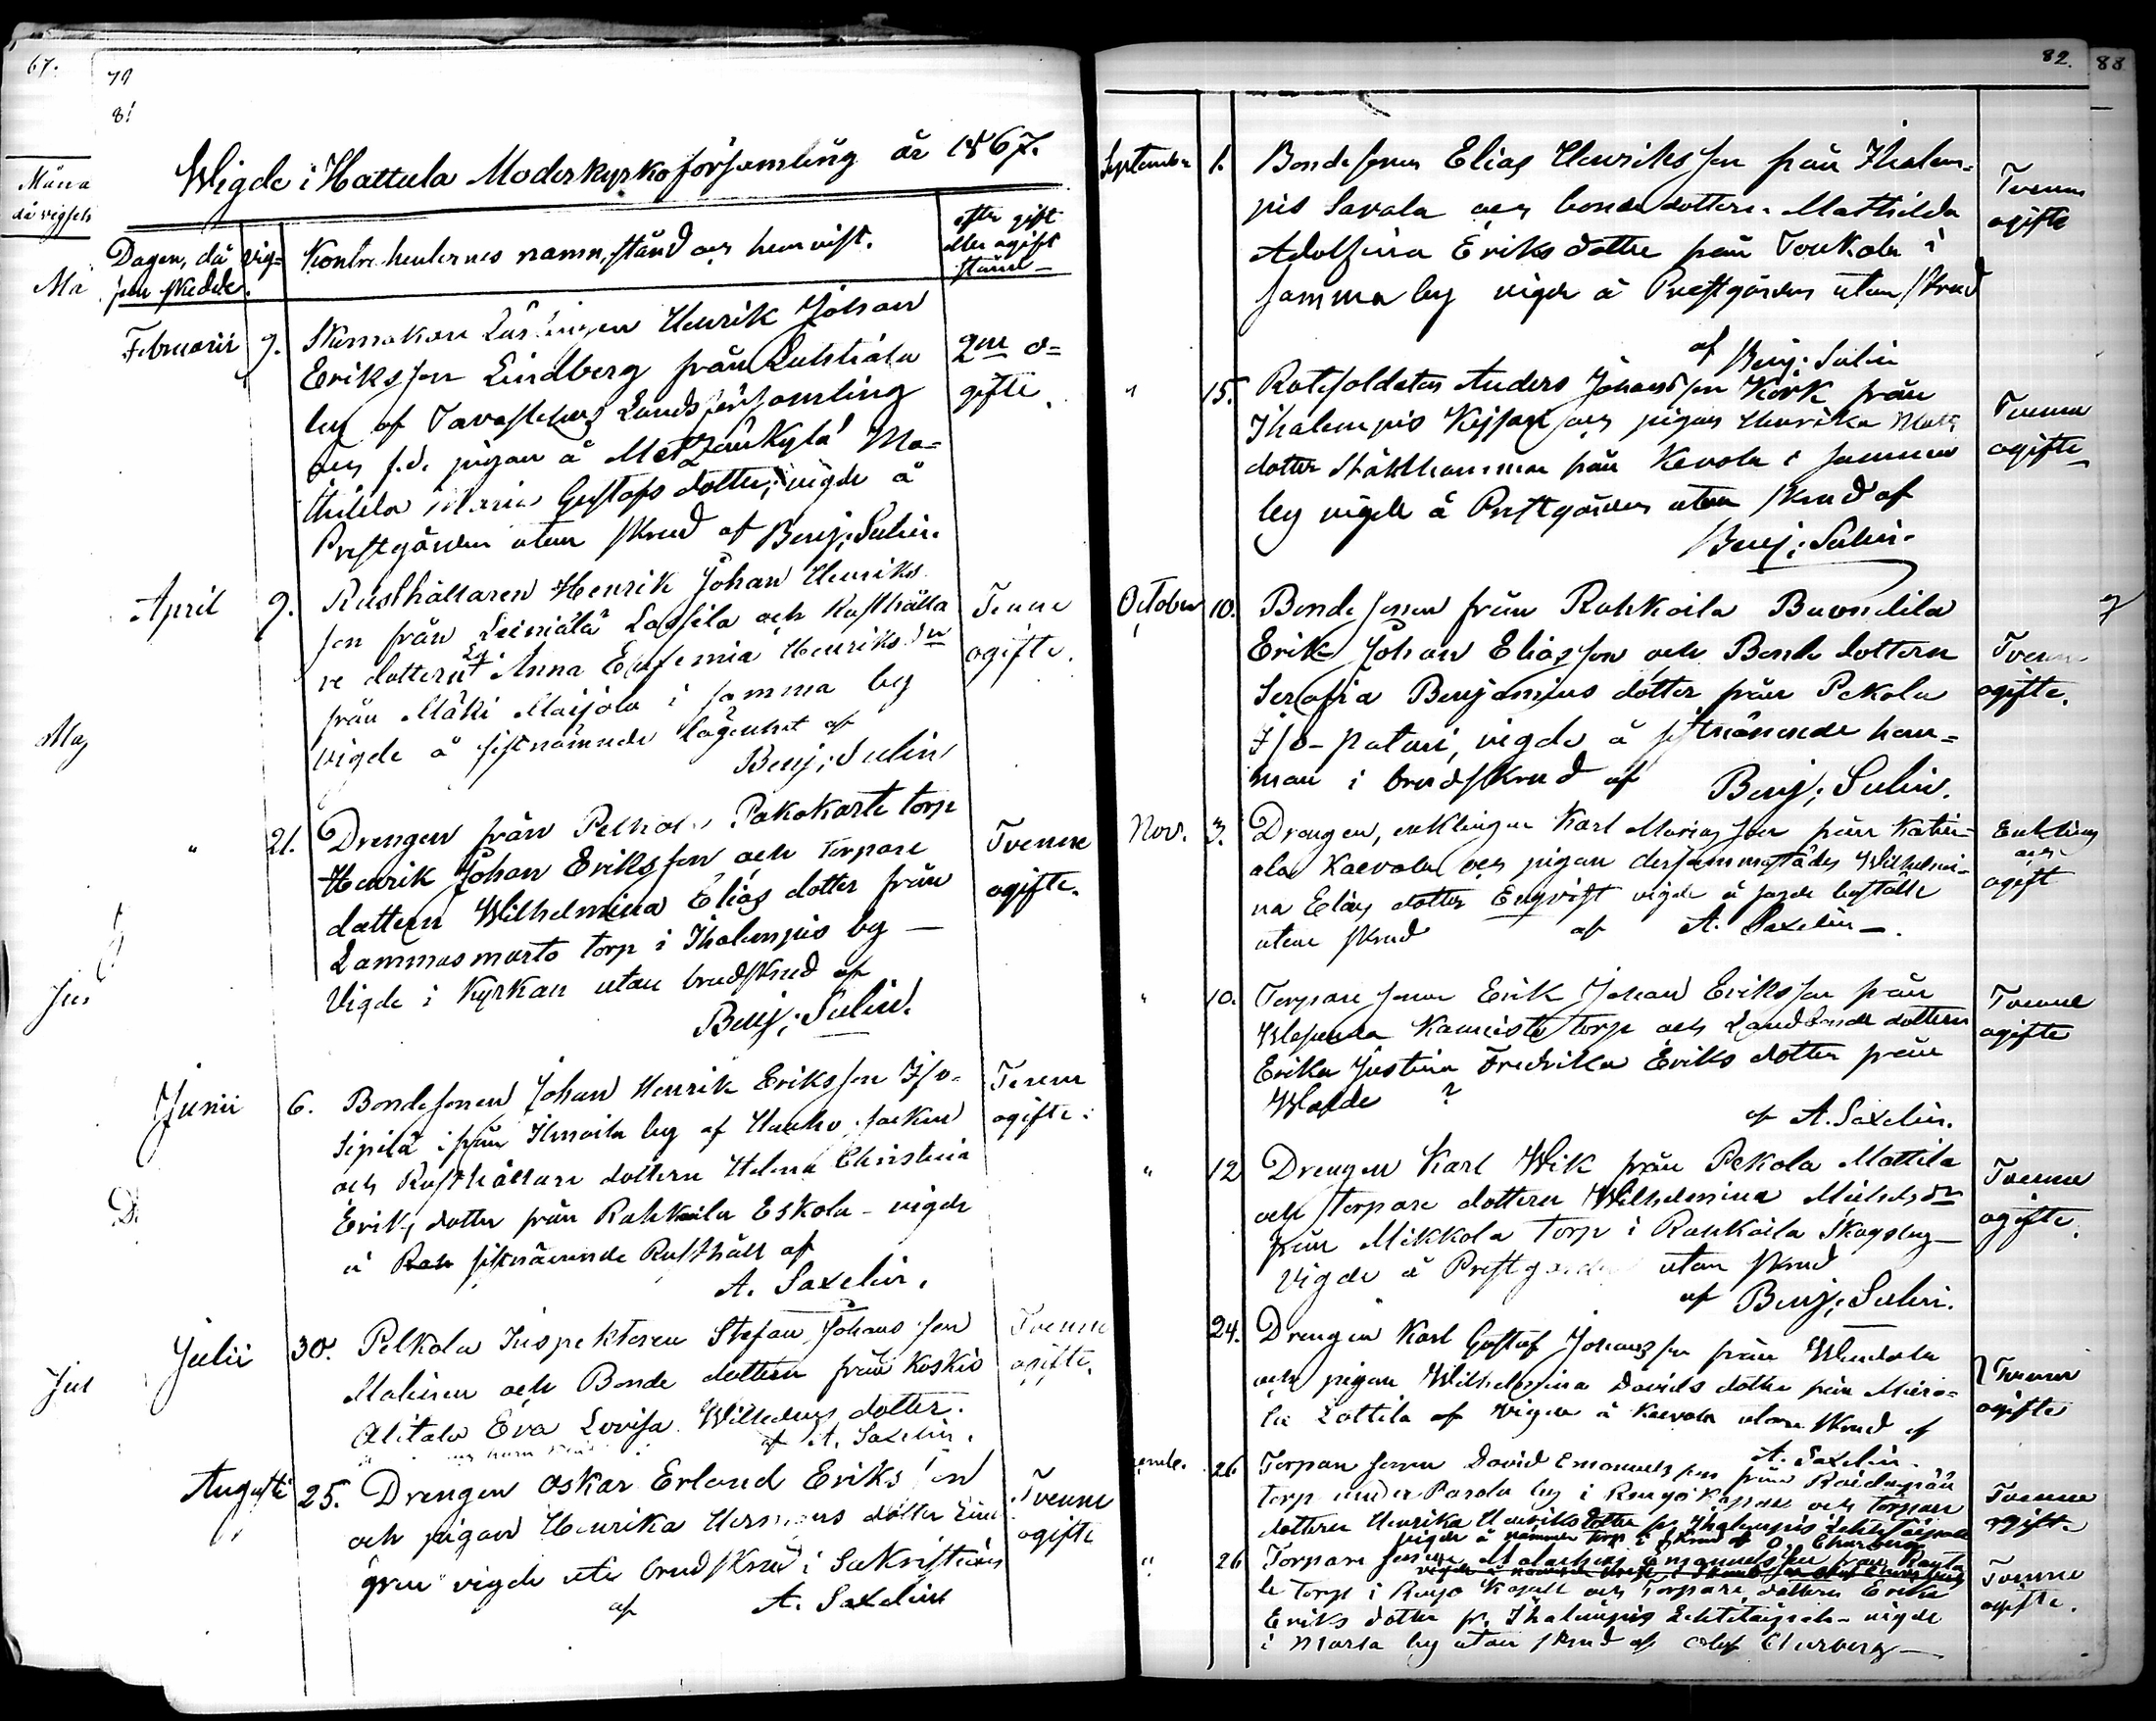 67.
79
81
Wigde i Hattula Moderkyrkoförsamling år 1867.
Dagen, då vig=
sen skedde.
Kontrahenternes namn, stånd och hemvist.
efter gift
eller ogift
stånd
Februarii 9.
Skomakare Lärlingen Henrik Johan
Eriksson Lindberg från Luhtiala
by af Tavastehus Landsförsamling
och f.d. pigan å Metzänkylä Ma=
thilda Maria Gustafsdotter, vigde å
Prestgården utan skrud af Benj: Sulin.
2ne o=
gifte.
April 9.
Rusthållaren Henrik Johan Henriks
son från Leiniälä Lassila och Rusthålla
re dottern Anna Eufemia Henriksdr
från Mäki Maijola i samma by
vigde å sistnämnde lägenhet af
Benj: Sulin
Tvenne
ogifte.
" 21.
Drengen från Pelkola Pakokarte torp
Henrik Johan Eriksson och torpare
dottern Wilhelmina Elias dotter från
Lammasmarto torp i Ihalempis by —
Vigde i Kyrkan utan brudskrud af
Benj: Sulin.
Tvenne
ogifte.
Junii 6.
Bondesonen Johan Henrik Eriksson Iso-
Sipilä från by af Hauho Socken
och Rusthållare dottern Helena Christina
Eriks dotter från Rahkoila Eskola - vigde
å sistnämnde Rusthåll af
A. Saxelin.
Tvenne
ogifte.
Julii 30.
Pelkola Inspektoren Stefan Johansson
Malinen och Bonde dottern från Koskis
Alitalo Eva Lovisa Willehms dotter.
af A. Saxelin.
Tvenne
ogifte.
Augusti 25.
Drengen Oskar Erland Eriksson
och pigan Henrika Hermans dotter
gren vigde uti brudskrud i Sakristian
af A. Saxelin
Tvenne
ogifte
82.
88
September 1.
Bondesonen Elias Henriksson från Ihalem=
pis Savola och bondedottern Mathilda
Adolfina Eriksdotter från Toukola i
samma by vigde å Prestgården utan skrud
af Benj: Sulin
Tvenne
ogifte
" 15.
Rotesoldaten Anders Johansson Kork från
Ihalempis och pigan Henrika Mats
dotter Ståhlhammar från Kevola i samma
by vigde å Prestgården utan skrud af
Benj: Sulin.
Tvenne
ogifte
October 10.
Bondesonen från Rahkoila Buondila
Erik Johan Eliasson och Bonde dottern
Serafia Benjamins dotter från Pekola
Iso-Paturi, vigde å sistnämnde hem=
man i brudskrud af Benj: Sulin.
Tvenne
ogifte.
Nov. 3.
Drengen, enklingen Karl Mariasson från Katin=
ala Kaevola och pigan dersammastädes Wilhelmi-
na Elias dotter Engvist vigde å sagde boställe
utan skrud af A. Saxelin —.
Enkling
och
ogift
" 10.
Torpare sonen Erik Johan Eriksson från
torp och Landbonde dottern
Erika Justina Fredrika Eriks dotter från
?
af A. Saxelin.
Tvenne
ogifte
" 12
Drengen Karl Wik från Pekola Mattila
och torpare dottern Wilhelmina Michelsdr
från Mikkola torp i Rahkoila Skogsby —
vigde å Prestgården utan skrud
af Benj: Sulin.
Tvenne
ogifte.
24.
Drengen Karl Gustaf Johansson från
och pigan Wilhelmina Davids dotter från Miero=
la Lottila vigde å Kaevola utan skrud af
A. Saxelin.
Tvenne
ogifte
26
Torpare sonen David Emanuelsson från
torp under Parola by i Rengo Kapell och torpare
dottern Henrika Henriksdotter fr. Ihalempis
vigde å nämnde torp i skrud af O. Churberg
Tvenne
ogifte
" 26
Torpare sonen Malachias Emanuelsson från
torp i Rengo Kapell och torpare dottern Erika
Eriks dotter fr. Ihalempis vigde
i by utan skrud af Olof Churberg —
Tvenne
ogifte.